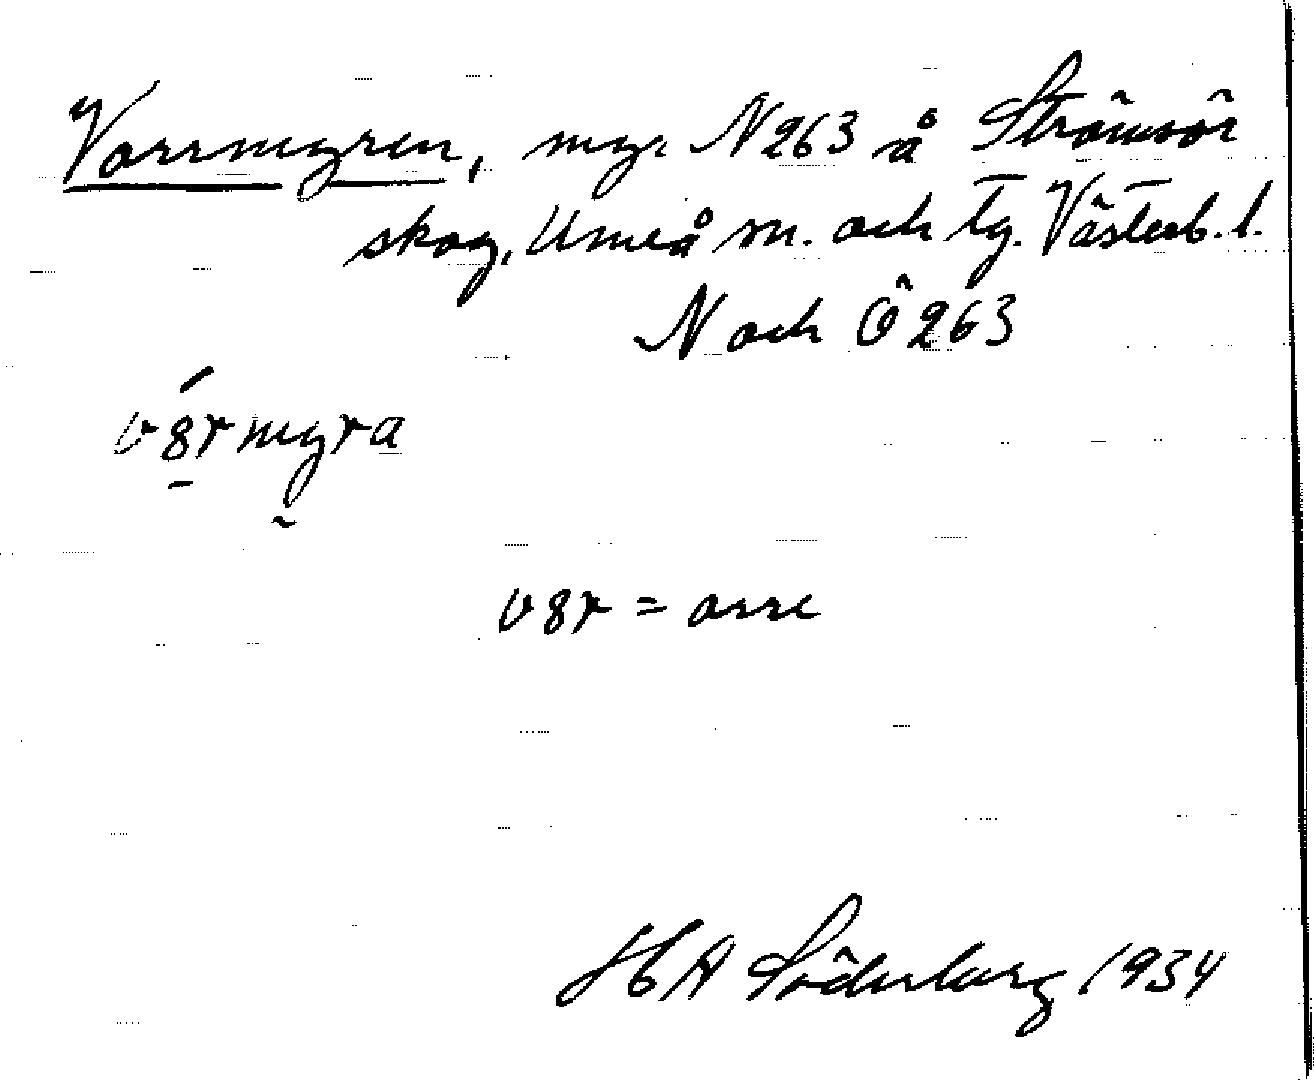 Vorrmyren, my. N 263 å Strömsör
skog, Umeå sn. och tg. Västerb. l.
N och Ö 263
v8rmyra
v8r = orre
H A Söderberg 1934